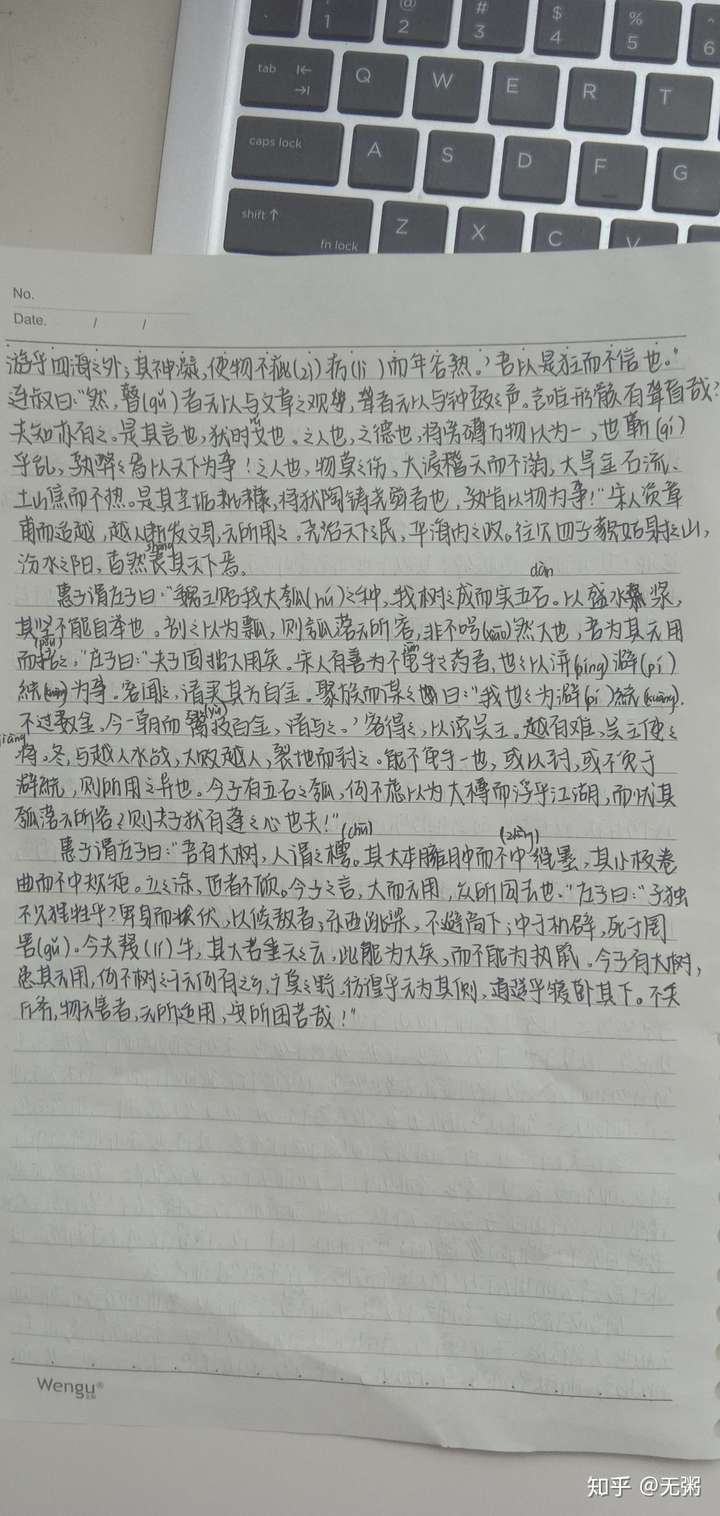 1
@ 2
# 3
$ 4
% 5
^ 6
tab
Q W E R T
caps lock
A S D F G
shift ↑
Z X C V
fn lock
No.
Date. / /
游乎四海之外；其神凝，使物不疵(zī)疠(lì)而年谷熟。’吾以是狂而不信也。”
连叔曰：“然，瞽(gǔ)者无以与文章之观，聋者无以与钟鼓之声。岂唯形骸有聋盲哉？
夫知亦有之。是其言也，犹时女也。之人也，之德也，将旁礴万物以为一，也蕲(qí)
乎乱，孰弊弊焉以天下为事！之人也，物莫之伤，大浸稽天而不溺，大旱金石流、
土山焦而不热。是其尘垢秕糠，将犹陶铸尧舜者也，孰肯以物为事！”宋人资章
甫而适越，越人断发文身，无所用之。尧治天下之民，平海内之政。往见四子藐姑射之山，
汾水之阳，窅然丧其天下焉。
惠子谓庄子曰：“魏王贻我大瓠(hú)之种，我树之成而实五石。以盛水浆，
dàn
其坚不能自举也。剖之以为瓢，则瓠落无所容，非不呺(xiāo)然大也，吾为其无用
而掊之，”庄子曰：“夫子固拙大用矣。宋人有善为不龟手之药者，也之以洴(píng)澼(pì)
絖(kuàng)为事。客闻之，请买其方百金。聚族而谋之曰：“我也之为澼(pì)絖(kuàng)，
不过数金，今一朝而鬻技百金，请与之。’客得之，以说吴王。越有难，吴王使之
将。冬，与越人水战，大败越人，裂地而封之。能不龟手一也，或以封，或不免于
澼絖，则所用之异也。今子有五石之瓠，何不虑以为大樽而浮乎江湖，而忧其
瓠落无所容？则夫子犹有蓬之心也夫！”
惠子谓庄子曰：“吾有大树，人谓之樗(chū)。其大本臃肿而不中(zhòng)绳墨，其小枝卷
曲而不中规矩。立之涂，匠者不顾。今子之言，大而无用，众所同去也。”庄子曰：“子独
不见狸牲乎？卑身而伏，以候敖者；东西跳梁，不避高下；中于机辟，死于罔
罟(gǔ)。今夫斄(lí)牛，其大若垂天之云，此能为大矣，而不能为执鼠。今子有大树，
患其无用，何不树之于无何有之乡，广莫之野，彷徨乎无为其侧，逍遥乎寝卧其下。不夭
斤斧，物无害者，无所适用，安所困苦哉！”
Wengu®
知乎 @无粥